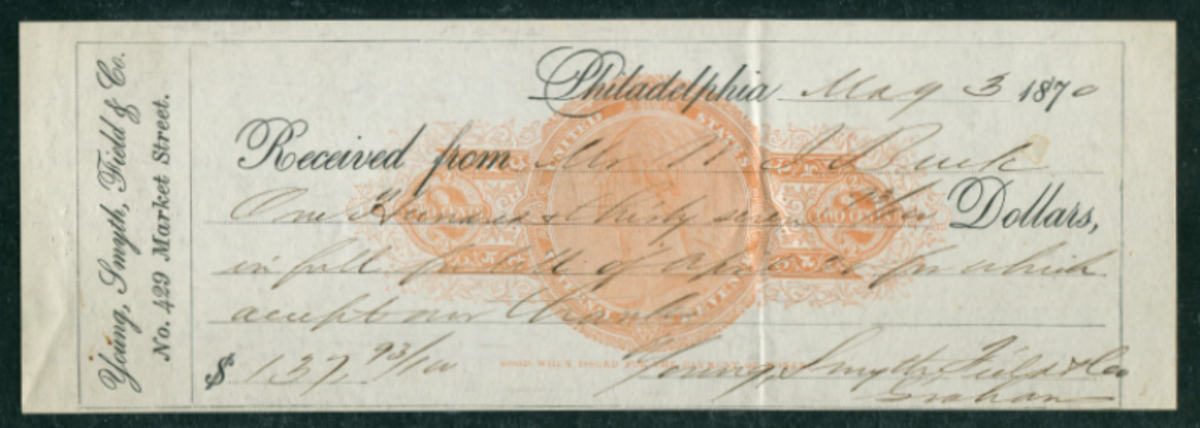 Young, Smyth, Field & Co.
No. 429 Market Street.
Philadelphia May 3 1870
Received from Mr
One Hundred & thirty seven 93/100 Dollars,
in full of for which
accept our thanks
UNITED STATES
$ 137 93/100 Young, Smyth Field & Co
Graham